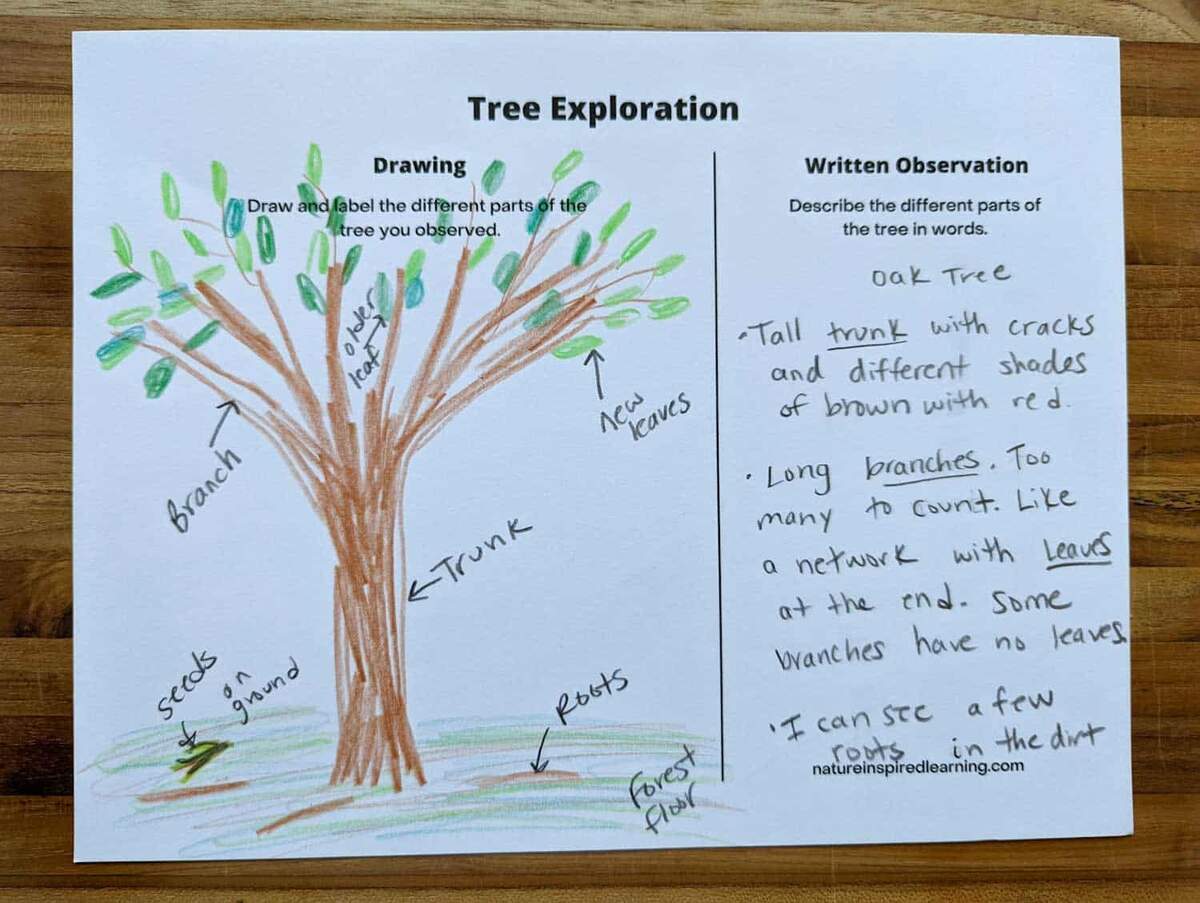 Tree Exploration
Drawing
Draw and label the different parts of the
tree you observed.
older
leaf
new
leaves
Branch
Trunk
seeds
on
ground
Roots
Forest
floor
Written Observation
Describe the different parts of
the tree in words.
Oak Tree
• Tall trunk with cracks
and different shades
of brown with red.
• Long branches. Too
many to count. Like
a network with Leaves
at the end. Some
branches have no leaves.
• I can see a few
roots in the dirt
natureinspiredlearning.com